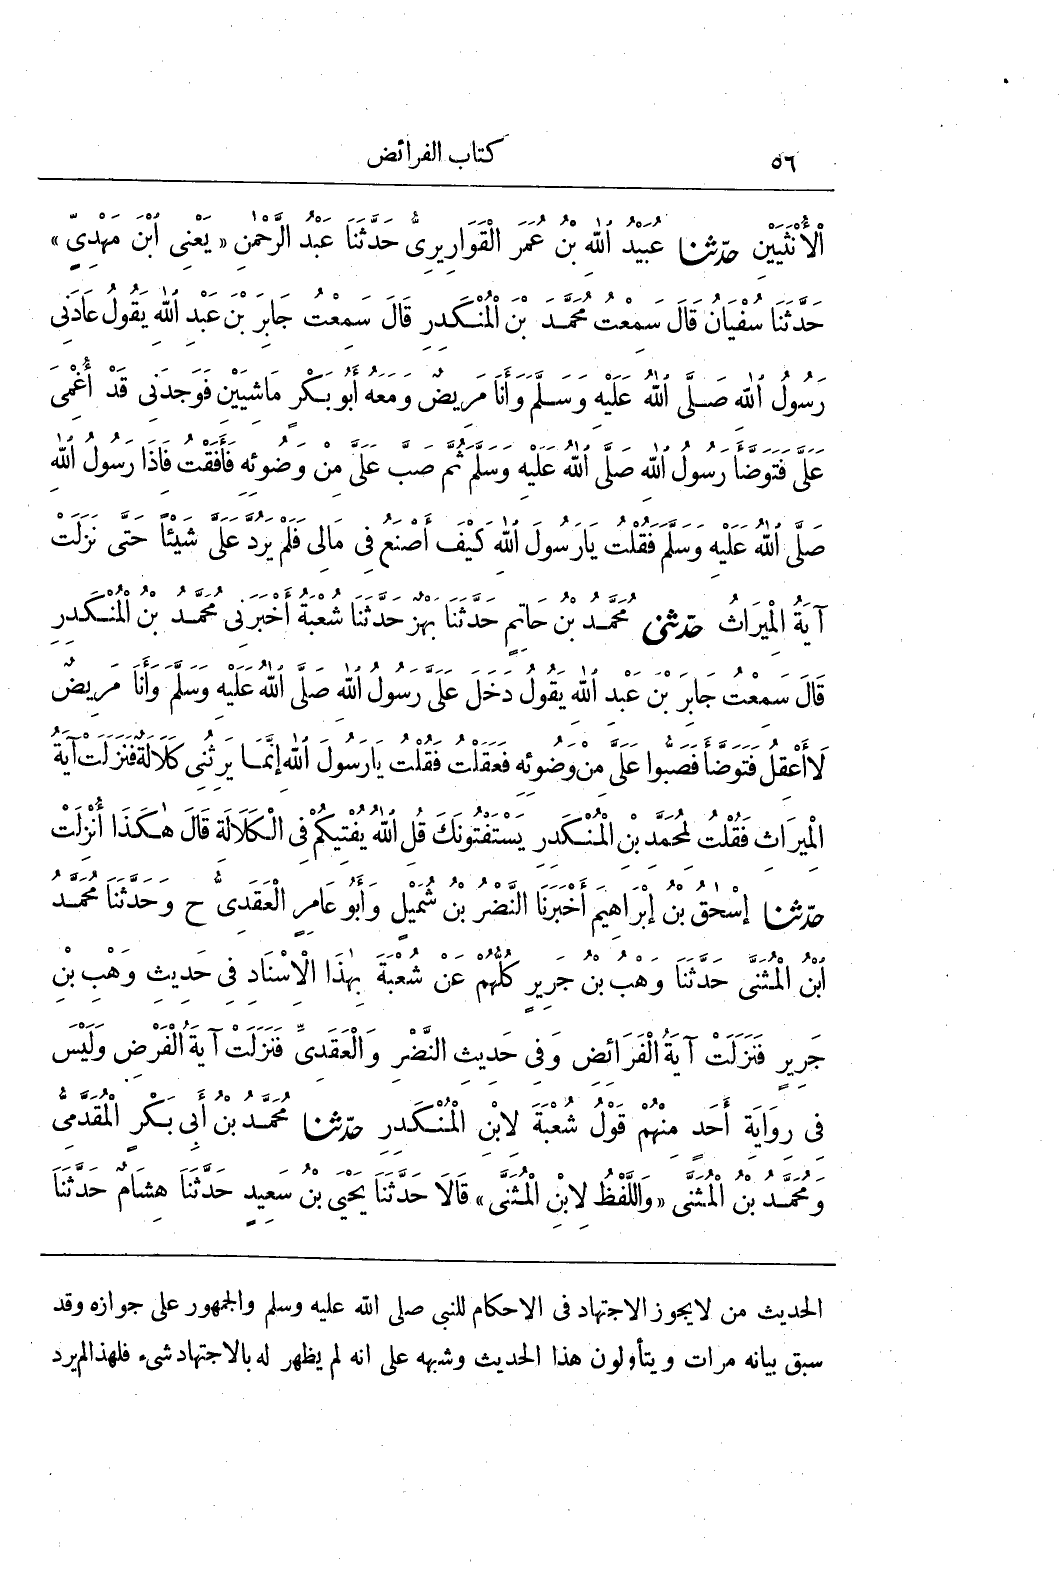 ٥٦ كتاب الفرائض
الْأُنْثَيَيْنِ حدّثنا عُبَيْدُ اللّٰهِ بْنُ عُمَرَ الْقَوَارِيرِىُّ حَدَّثَنَا عَبْدُ الرَّحْمٰنِ «يَعْنِى ابْنَ مَهْدِىٍّ»
حَدَّثَنَا سُفْيَانُ قَالَ سَمِعْتُ مُحَمَّدَ بْنَ الْمُنْكَدِرِ قَالَ سَمِعْتُ جَابِرَ بْنَ عَبْدِ اللّٰهِ يَقُولُ عَادَنِى
رَسُولُ اللّٰهِ صَلَّى اللّٰهُ عَلَيْهِ وَسَلَّمَ وَأَنَا مَرِيضٌ وَمَعَهُ أَبُو بَكْرٍ مَاشِيَيْنِ فَوَجَدَنِى قَدْ أُغْمِىَ
عَلَىَّ فَتَوَضَّأَ رَسُولُ اللّٰهِ صَلَّى اللّٰهُ عَلَيْهِ وَسَلَّمَ ثُمَّ صَبَّ عَلَىَّ مِنْ وَضُوئِهِ فَأَفَقْتُ فَاذَا رَسُولُ اللّٰهِ
صَلَّى اللّٰهُ عَلَيْهِ وَسَلَّمَ فَقُلْتُ يَارَسُولَ اللّٰهِ كَيْفَ أَصْنَعُ فِى مَالِى فَلَمْ يَرُدَّ عَلَىَّ شَيْئًا حَتَّى نَزَلَتْ
آيَةُ الْمِيرَاثِ حدّثنى مُحَمَّدُ بْنُ حَاتِمٍ حَدَّثَنَا بَهْزٌ حَدَّثَنَا شُعْبَةُ أَخْبَرَنِى مُحَمَّدُ بْنُ الْمُنْكَدِرِ
قَالَ سَمِعْتُ جَابِرَ بْنَ عَبْدِ اللّٰهِ يَقُولُ دَخَلَ عَلَىَّ رَسُولُ اللّٰهِ صَلَّى اللّٰهُ عَلَيْهِ وَسَلَّمَ وَأَنَا مَرِيضٌ
لَا أَعْقِلُ فَتَوَضَّأَ فَصَبُّوا عَلَىَّ مِنْ وَضُوئِهِ فَعَقَلْتُ فَقُلْتُ يَارَسُولَ اللّٰهِ إِنَّمَا يَرِثُنِى كَلَالَةٌ فَنَزَلَتْ آيَةُ
الْمِيرَاثِ فَقُلْتُ لِمُحَمَّدِ بْنِ الْمُنْكَدِرِ يَسْتَفْتُونَكَ قُلِ اللّٰهُ يُفْتِيكُمْ فِى الْكَلَالَةِ قَالَ هٰكَذَا أُنْزِلَتْ
حدّثنا إِسْحٰقُ بْنُ إِبْرَاهِيمَ أَخْبَرَنَا النَّضْرُ بْنُ شُمَيْلٍ وَأَبُو عَامِرٍ الْعَقَدِىُّ ح وَحَدَّثَنَا مُحَمَّدُ
ابْنُ الْمُثَنَّى حَدَّثَنَا وَهْبُ بْنُ جَرِيرٍ كُلُّهُمْ عَنْ شُعْبَةَ بِهٰذَا الْإِسْنَادِ فِى حَدِيثِ وَهْبِ بْنِ
جَرِيرٍ فَنَزَلَتْ آيَةُ الْفَرَائِضِ وَفِى حَدِيثِ النَّضْرِ وَالْعَقَدِىِّ فَنَزَلَتْ آيَةُ الْفَرْضِ وَلَيْسَ
فِى رِوَايَةِ أَحَدٍ مِنْهُمْ قَوْلُ شُعْبَةَ لِابْنِ الْمُنْكَدِرِ حدّثنا مُحَمَّدُ بْنُ أَبِى بَكْرٍ الْمُقَدَّمِىُّ
وَمُحَمَّدُ بْنُ الْمُثَنَّى «وَاللَّفْظُ لِابْنِ الْمُثَنَّى» قَالَا حَدَّثَنَا يَحْيَى بْنُ سَعِيدٍ حَدَّثَنَا هِشَامٌ حَدَّثَنَا
الحديث من لايجوز الاجتهاد فى الاحكام للنبى صلى الله عليه وسلم والجمهور على جوازه وقد
سبق بيانه مرات ويتأولون هذا الحديث وشبهه على انه لم يظهر له بالاجتهاد شىء فلهذا لم يرد